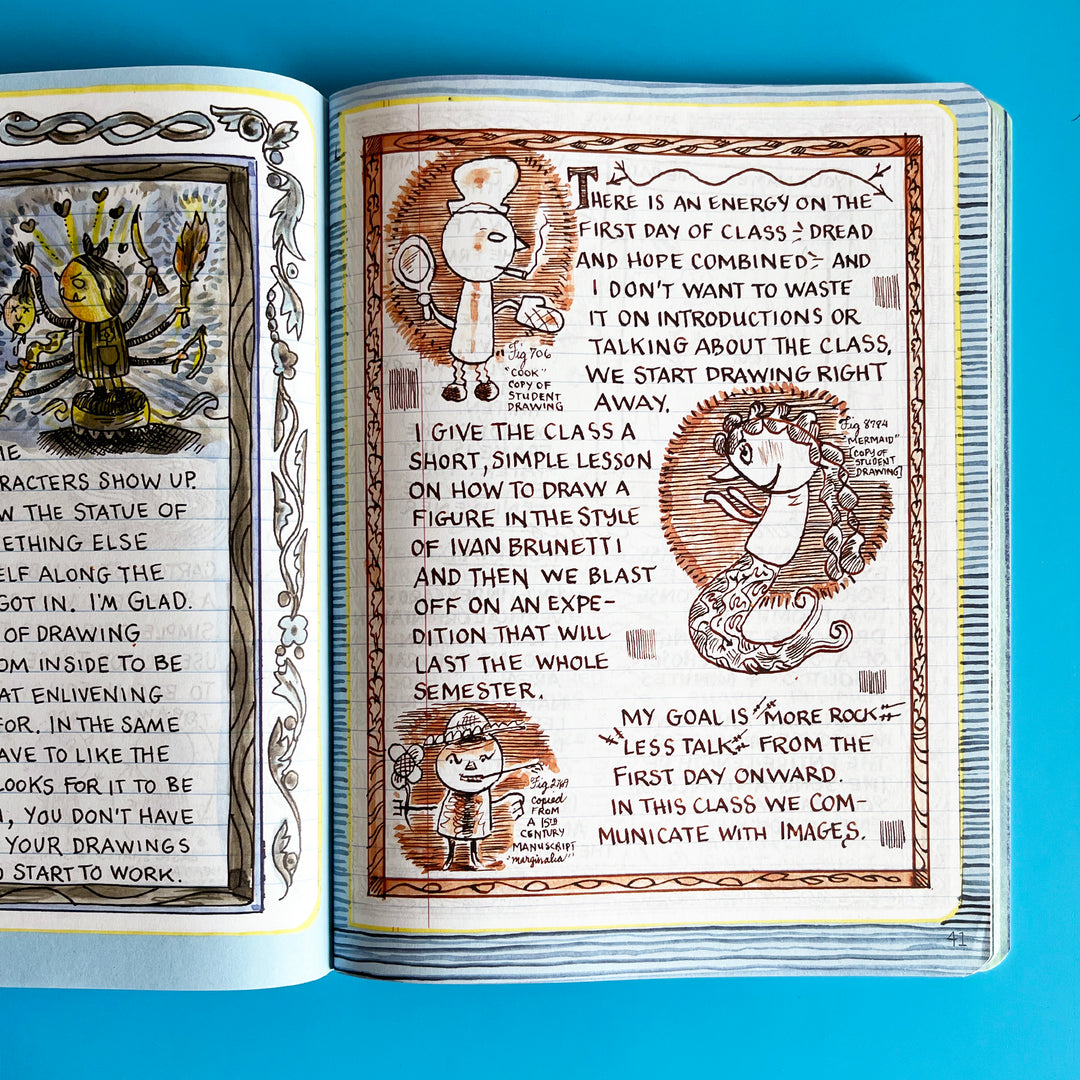 ME
RACTERS SHOW UP.
W THE STATUE OF
ETHING ELSE
ELF ALONG THE
GOT IN. I'M GLAD.
OF DRAWING
OM INSIDE TO BE
AT ENLIVENING
FOR. IN THE SAME
AVE TO LIKE THE
LOOKS FOR IT TO BE
, YOU DON'T HAVE
YOUR DRAWINGS
O START TO WORK.
THERE IS AN ENERGY ON THE
FIRST DAY OF CLASS - DREAD
AND HOPE COMBINED - AND
I DON'T WANT TO WASTE
IT ON INTRODUCTIONS OR
TALKING ABOUT THE CLASS,
WE START DRAWING RIGHT
AWAY.
Fig 706
"COOK"
COPY OF
STUDENT
DRAWING
I GIVE THE CLASS A
SHORT, SIMPLE LESSON
ON HOW TO DRAW A
FIGURE IN THE STYLE
OF IVAN BRUNETTI
AND THEN WE BLAST
OFF ON AN EXPE-
DITION THAT WILL
LAST THE WHOLE
SEMESTER.
Fig 8784
"MERMAID"
[COPY OF
STUDENT
DRAWING]
MY GOAL IS "MORE ROCK
LESS TALK" FROM THE
FIRST DAY ONWARD.
IN THIS CLASS WE COM-
MUNICATE WITH IMAGES.
Fig
Copied
FROM
A 15TH
CENTURY
MANUSCRIPT
"marginalia"
41